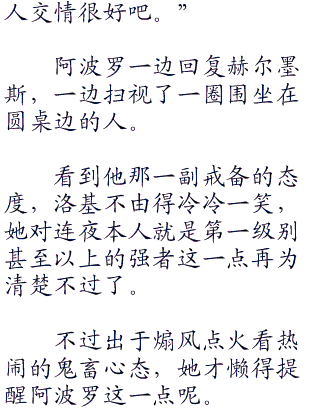 人交情很好吧。”
阿波罗一边回复赫尔墨
斯，一边扫视了一圈围坐在
圆桌边的人。
看到他那一副戒备的态
度，洛基不由得冷冷一笑，
她对连夜本人就是第一级别
甚至以上的强者这一点再为
清楚不过了。
不过出于煽风点火看热
闹的鬼畜心态，她才懒得提
醒阿波罗这一点呢。